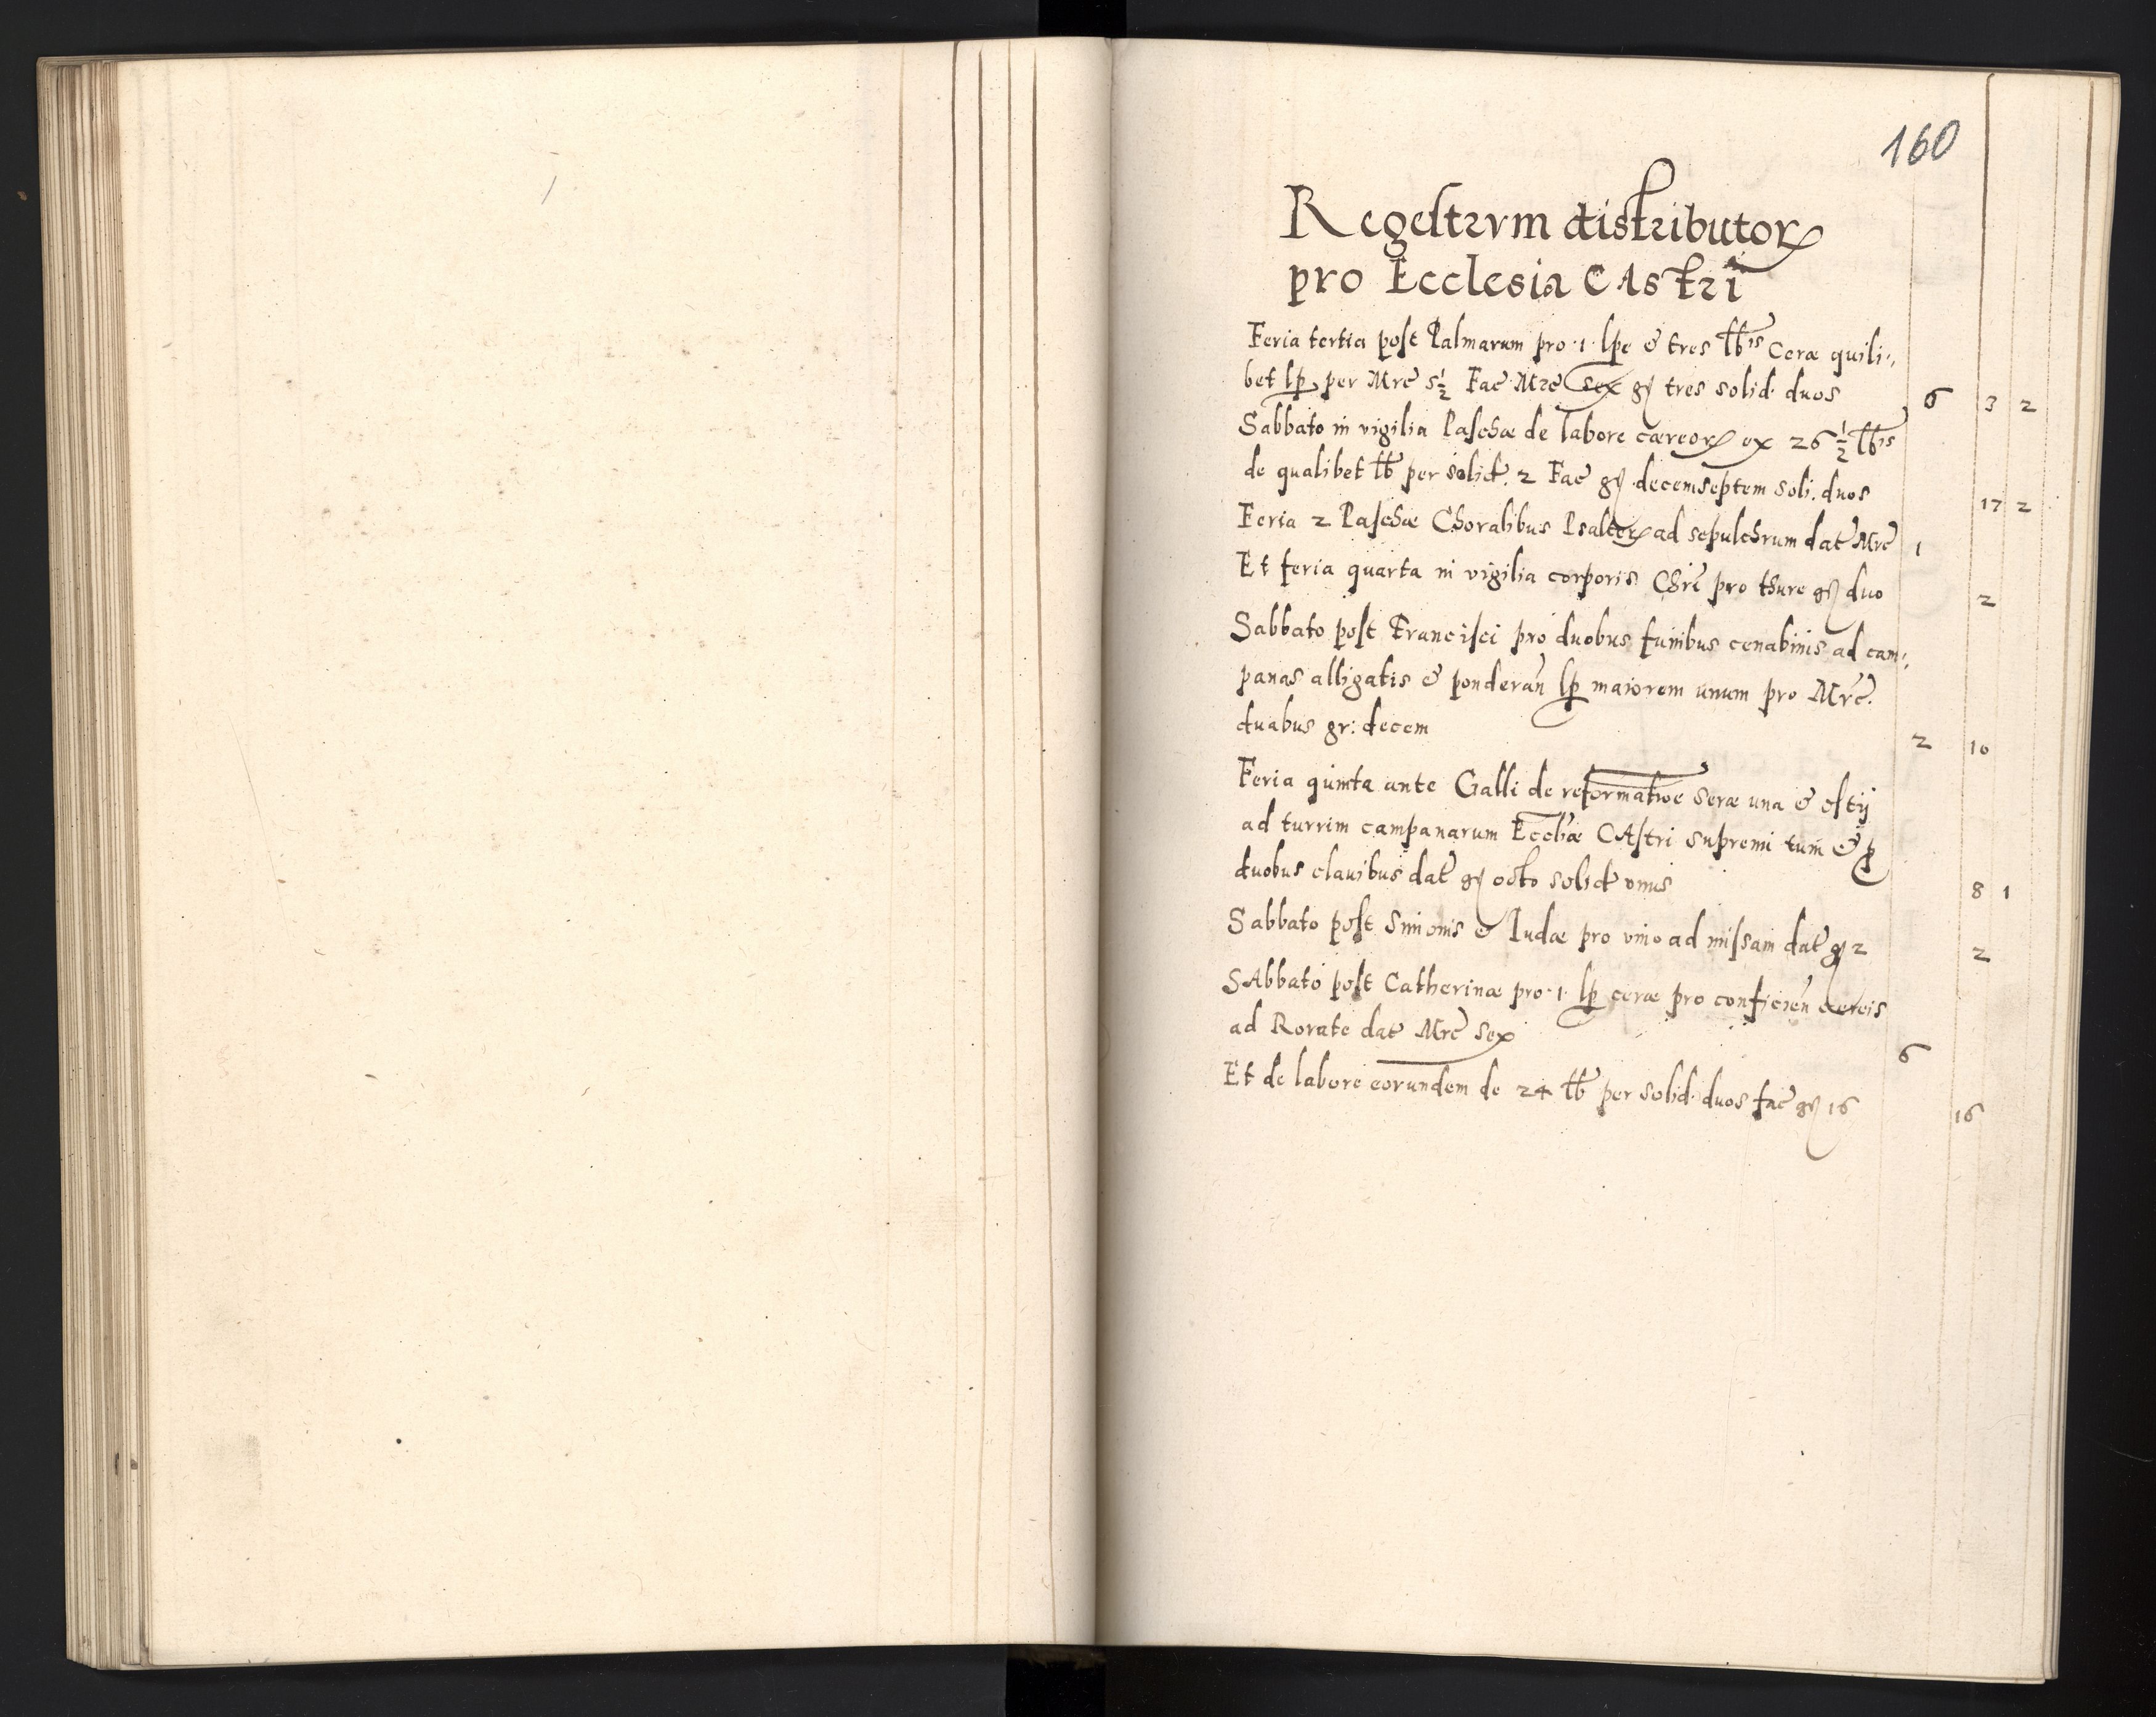 160
Regestrvm distributorꝝ
pro Ecclesia CAstri
Feria tertia post Palmarum pro ·1· lpe & tres lb͞is Ceræ quili-
bet lp per Mrc 5½ Fac Mrc sex gꝝ tres solid. duos 6 3 2
Sabbato in vigilia Paschæ de labore cæreorꝝ ex 26 ½ lb͞is
de qualibet lb per solid. 2 Fac gꝝ decemseptem soli. duos 17 2
Feria 2 Paschæ Choralibus Psalterꝝ ad sepulchrum dat Mrc 1
Et feria quarta in vigilia corporis Chri pro thure gꝝ duo 2
Sabbato post Francisci pro duobus funibus cenabinis ad cam-
panas alligatis & ponderan̄ lp maiorem unum pro Mrc.
duabus gr: decem 2 10
Feria quinta ante Galli de reformatioe seræ una & ostij
ad turrim campanarum Eccliæ CAstri supremi tum & p
duobus clauibus dat gꝝ octo solid vnus 8 1
Sabbato post Simonis & Iudæ pro vino ad missam dat gꝝ 2 2
SAbbato post Catherinæ pro ·1· lp ceræ pro conficien̄ cereis
ad Rorate dat Mrc sex 6
Et de labore eorundem de 24 lb per solid. duos fac gꝝ 16 16